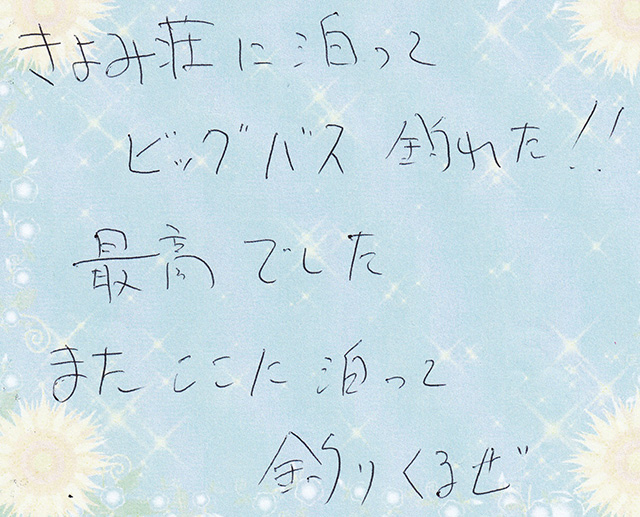 きよみ荘に泊って
ビッグバス釣れた!!
最高でした
またここに泊って
釣りくるぜ